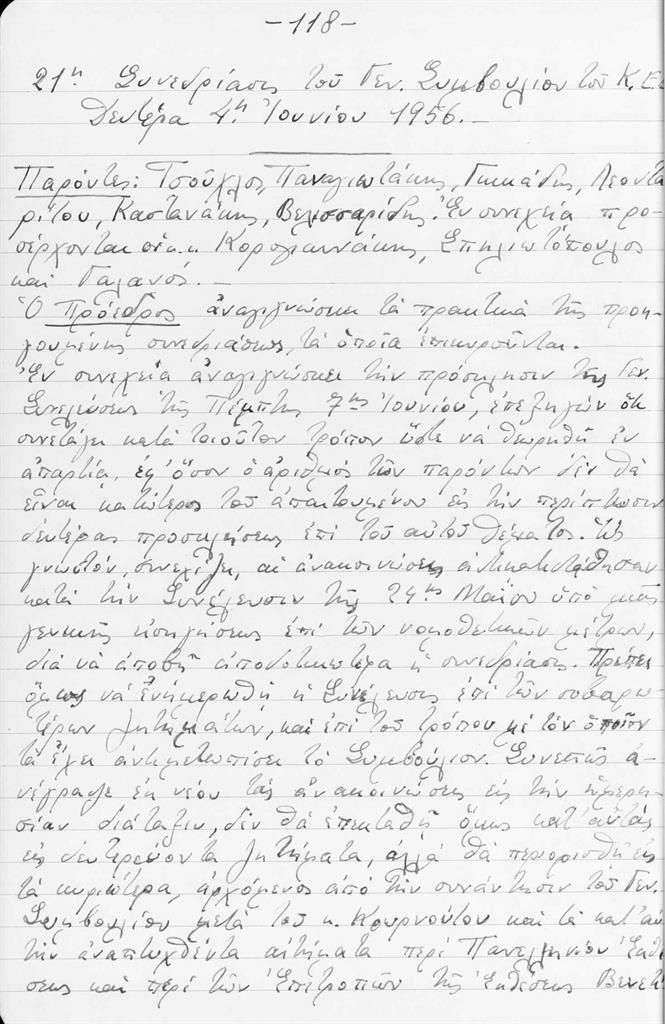 -118-
21η Συνεδρίασις τοῦ Γεν. Συμβουλίου τοῦ Κ.Ε.
Δευτέρα 4η Ἰουνίου 1956.-
Παρόντες: Τσοῦχλος, Παναγιωτάκης, Γκικάδης, Λεοντα
ρίτου, Καστανάκης, Βελισσαρίδης. Ἐν συνεχείᾳ προ-
σέρχονται οἱ κ.κ. Κορογιαννάκης, Σπηλιωτόπουλος
καὶ Γαλανός.-
Ὁ Πρόεδρος ἀναγιγνώσκει τὰ πρακτικὰ τῆς προη-
γουμένης συνεδριάσεως, τὰ ὁποῖα ἐπικυροῦνται.
Ἐν συνεχείᾳ ἀναγιγνώσκει τὴν πρόσκλησιν τῆς Γεν.
Συνελεύσεως τῆς Πέμπτης 7ης Ἰουνίου, ἐπεξηγῶν ὅτι
συνετάγη κατὰ τοιοῦτον τρόπον ὥστε νὰ θεωρηθῇ ἐν
ἀπαρτίᾳ, ἐφ' ὅσον ὁ ἀριθμὸς τῶν παρόντων δὲν θὰ
εἶναι κατώτερος τοῦ ἀπαιτουμένου εἰς τὴν περίπτωσιν
δευτέρας προσκλήσεως ἐπὶ τοῦ αὐτοῦ θέματος. Ὡς
γνωστόν, συνεχίζει, αἱ ἀνακοινώσεις ἀντικατεστάθησαν
κατὰ τὴν Συνέλευσιν τῆς 24ης Μαΐου ὑπὸ μιᾶς
γενικῆς εἰσηγήσεως ἐπὶ τῶν νομοθετικῶν μέτρων,
διὰ νὰ ἀποβῇ ἀποδοτικωτέρα ἡ συνεδρίασις. Πρέπει
ὅμως νὰ ἐνημερωθῇ ἡ Συνέλευσις ἐπὶ τῶν σοβαρω-
τέρων ζητημάτων, καὶ ἐπὶ τοῦ τρόπου μὲ τὸν ὁποῖον
τὰ ἔχει ἀντιμετωπίσει τὸ Συμβούλιον. Συνεπῶς ἀ-
νέγραψε ἐκ νέου τὰς ἀνακοινώσεις εἰς τὴν ἡμερη-
σίαν διάταξιν, δὲν θὰ ἐπεκταθῇ ὅμως κατ' αὐτὰς
εἰς δευτερεύοντα ζητήματα, ἀλλὰ θὰ περιορισθῇ εἰς
τὰ κυριώτερα, ἀρχόμενος ἀπὸ τὴν συνάντησιν τοῦ Γεν.
Συμβουλίου μετὰ τοῦ κ. Κουρνούτου καὶ τὰ κατ' αὐ
τὴν ἀναπτυχθέντα αἰτήματα περὶ Πανελληνίου Ἐκθέ
σεως καὶ περὶ τῶν Ἐπιτροπῶν τῆς Ἐκθέσεως Βενετ